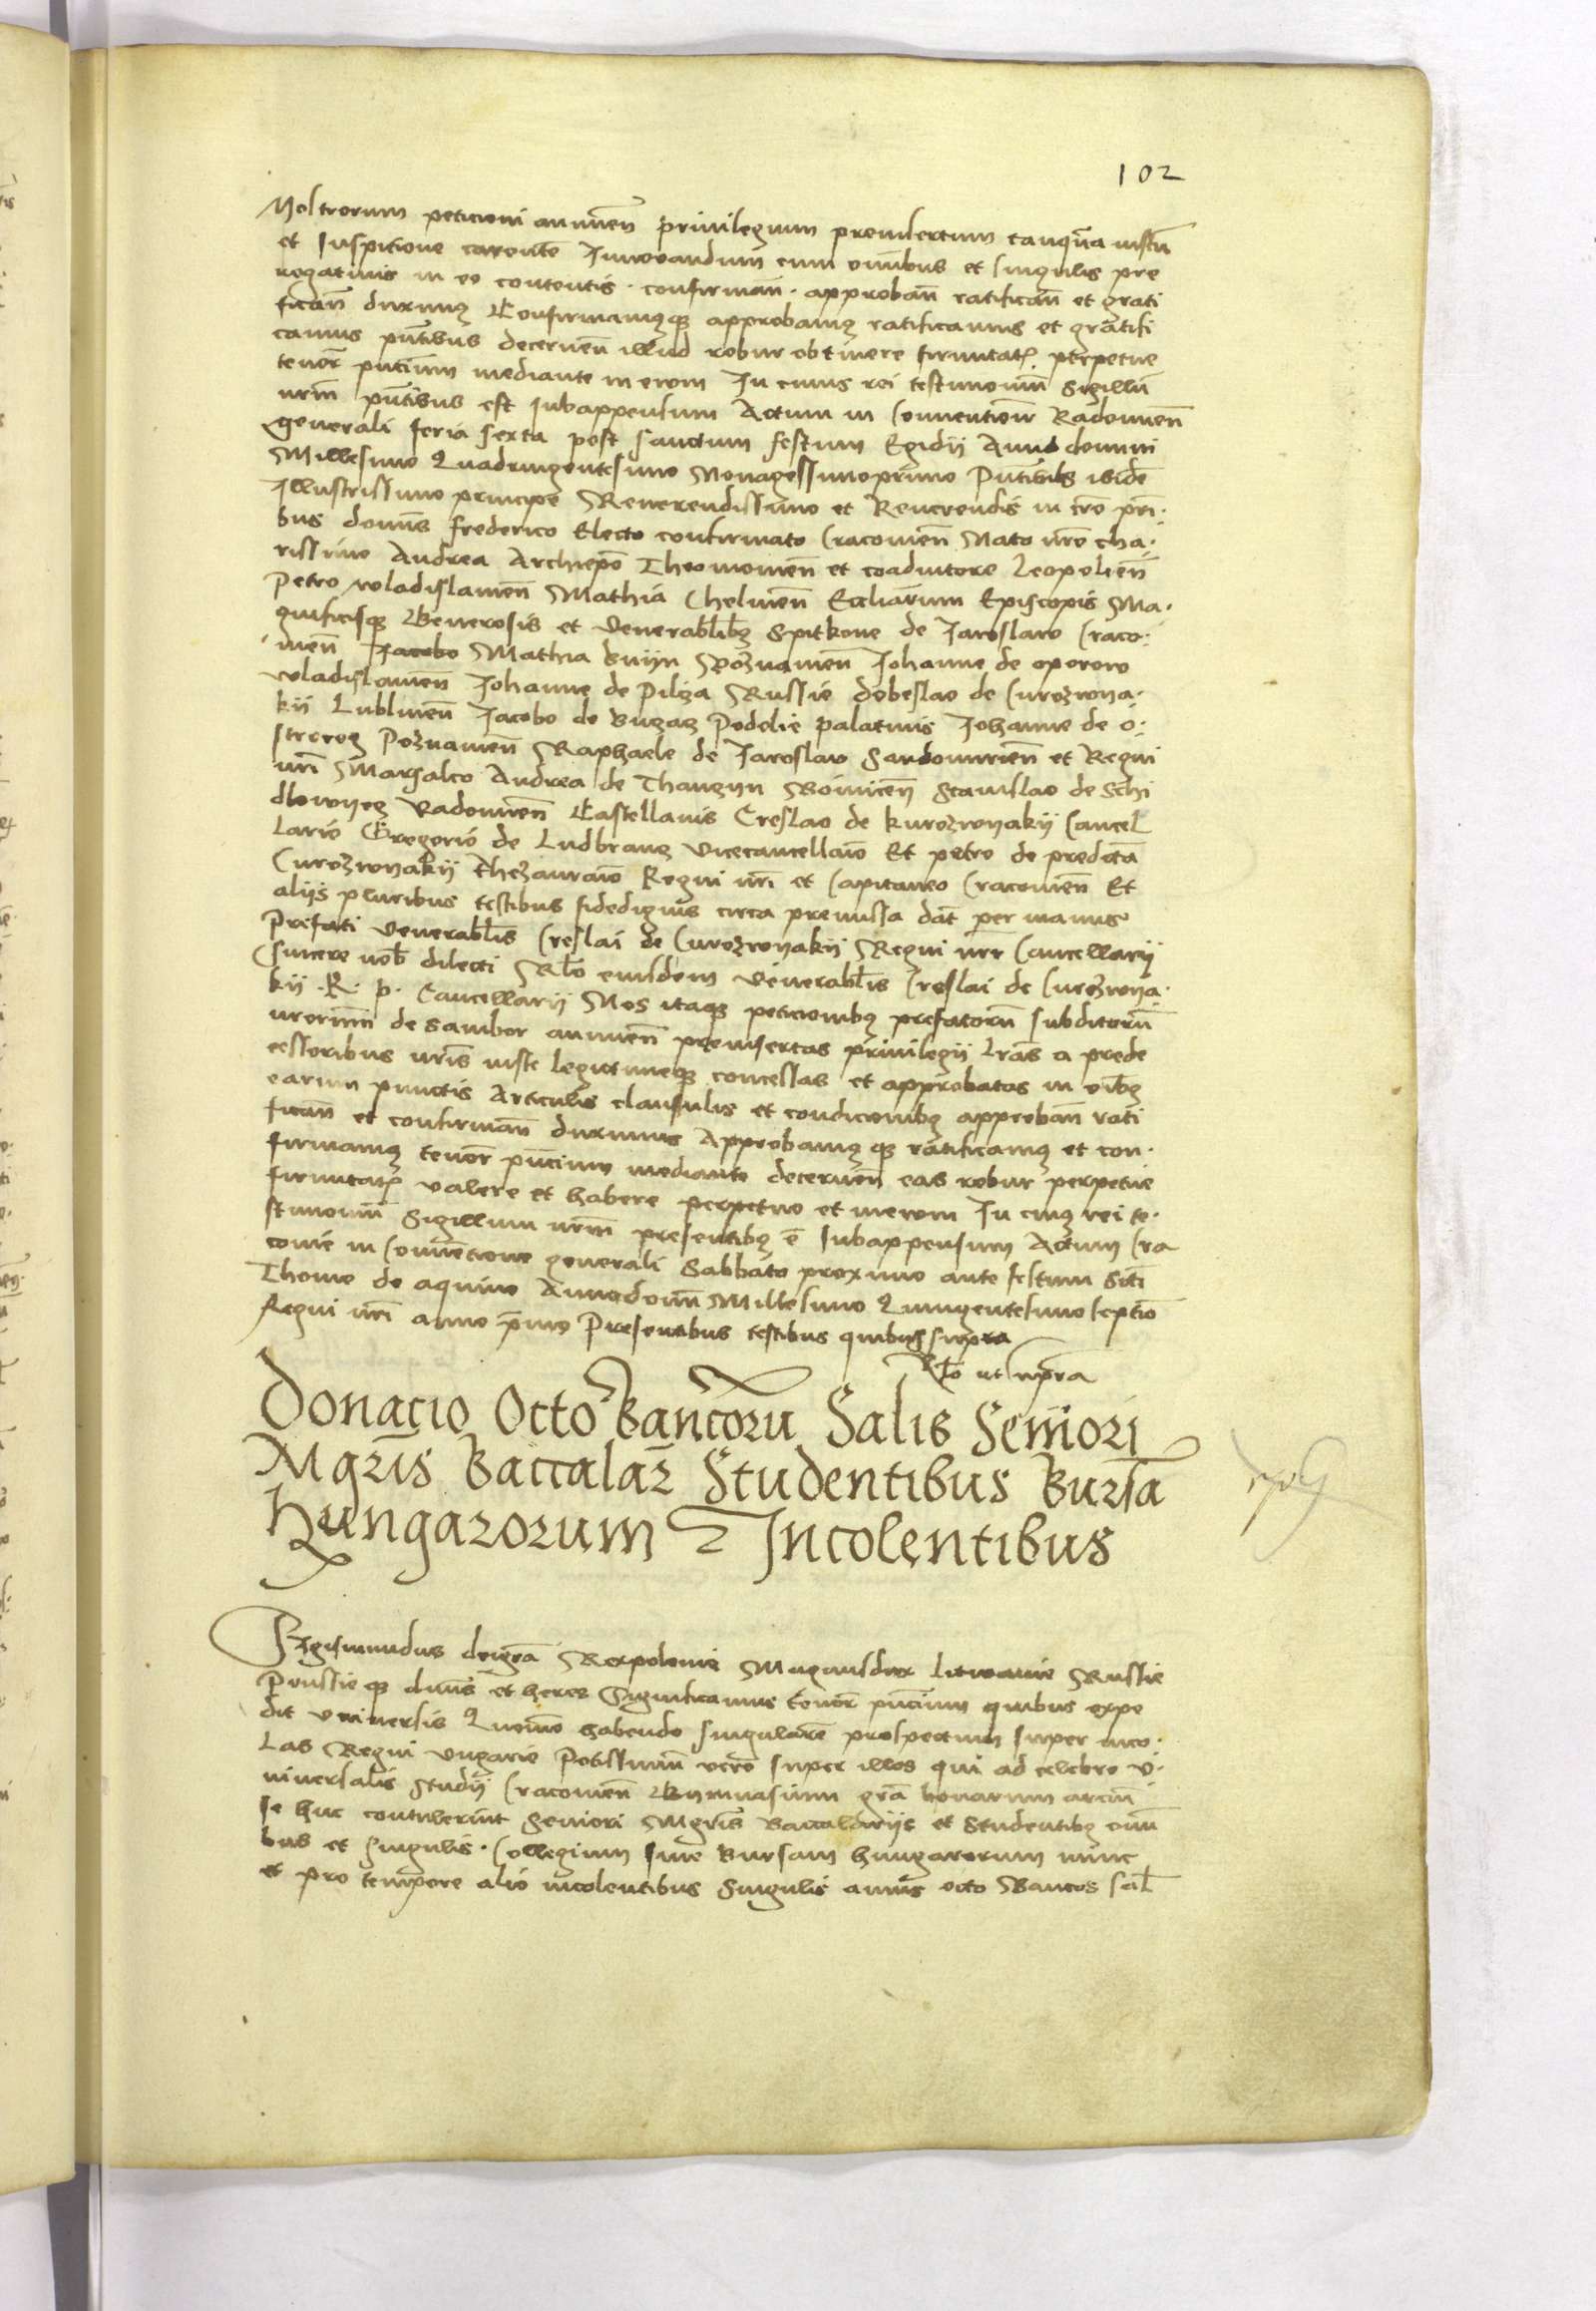 102
Nostrorum peticioni annuen̄ privilegium preinsertum tanquā iustū
et suspitione carente Innovandum cum omnibus et singulis pre
rogativis in eo contentis . confirman̄ . approban̄ ratifican̄ et grati
fican̄ duximus Confirmamusque approbamus ratificamus et gratifi
camus pn̄tibus decernen̄ illud robur obtinere firmitatis perpetue
tenore pn̄cium mediante in evom In cuius rei testimoniū Sigillū
nrm̄ pn̄tibus est subappensum Actum in Conventione Radomien̄
generali feria sexta post sanctum festum Egidij Anno domini
Millesimo Quadringentesimo Nonagessimoprimo Pn̄tibus ibidē
Illustrissimo principe Reverendissimo et Reverendis in cro pri
bus domīs frederico Electo confirmato Cracovien̄ Nato nro cha
rissimo Andrea Archiepo Theonomen̄ et coadiutore Leopolien̄
Petro wladislavien̄ Mathia Chelmen̄ Eccliarum Episcopis Ma
gnificisque Generosis et Venerablibus Spitkone de Jaroslaw Craco
vien̄ Jacobo Mathia bnijn Poznanien̄ Johanne de oporow
wladislavien̄ Johanne de Pilcza Russie dobeslao de Curozwana
kij Lublinen̄ Jacobo de buczacz Podolie palatinis Johanne de o
strorog Poznanien̄ Raphaele de Jaroslaw Sandomirien̄ et Regni
nri Marsalco Andrea de Thanczyn Woinicen̄ Stanislao de Schi
dlowyecz Radomien̄ Castellanis Creslao de kurozwanakij Cancel
lario Gregorio de Ludbrancz vicecancellario Et petro de predicta
Curozwanakij thezaurario Regni nri et Capitaneo Cracovien̄ Et
alijs pluribus testibus fidedignis circa premissa dat̄ per manus
Prefati Venerablis Creslai de Curozwanakij Regni nri Cancellarij
Sincere nob̄ dilecti Rlo eiusdem Venerablis Creslai de Curozwana
kij . R . p . Cancellarij Nos itaque peticionibus prefatorū subditorū
nrorum̄ de Sambor annuen̄ preinsertas privilegij lrās a prede
cessoribus nris̄ iuste legittimeque concessas et approbatas in oibus
earum punctis Articulis clausulis et condicionibus approban̄ rati
fican̄ et confirman̄ duximus Approbamusque ratificamus et con
firmamus tenore pn̄cium mediante decernen̄ eas robur perpetue
firmitatis valere et habere perpetuo et in evom In cuius rei te
stimoniū Sigillum nrm̄ presentibus ē subappensum Actum Cra
covie in Conventione generali Sabbato proximo ante festum Sct̄i
Thome de aquino Annodomī Millesimo Quingentesimo septīo
Regni nri anno primo Presentibus testibus quibus supra
Rlo ut supra
Donacio Octo Bancorū Salis Seniori
Mgris Baccalar Studentibus Bursā
Hungarorum Incolentibus
Sigismundus deigrā Rexpolonie Magnusdux lituanie Russie
Prussieque dnūs et heres Significamus tenore pn̄cium quibus expe
dit Universis Quomo habendo singularē prospectum super inco
las Regni Ungarie Potissimū vero super illos qui ad celebre U
niversalis Studij Cracovien̄ Gymnasium grā bonarum arciū
se huc contulerint Seniori Mgris̄ Baccalarijs et Studentibus omī
bus et singulis . Collegium sive Bursam hungarorum nunc
et pro tempore alio incolentibus Singulis annis octo Bancos sal̄